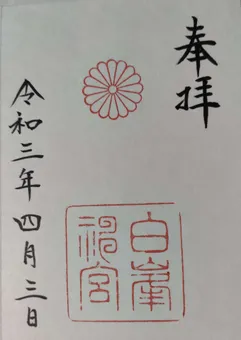 奉拝
白峯
神宮
令和三年四月三日